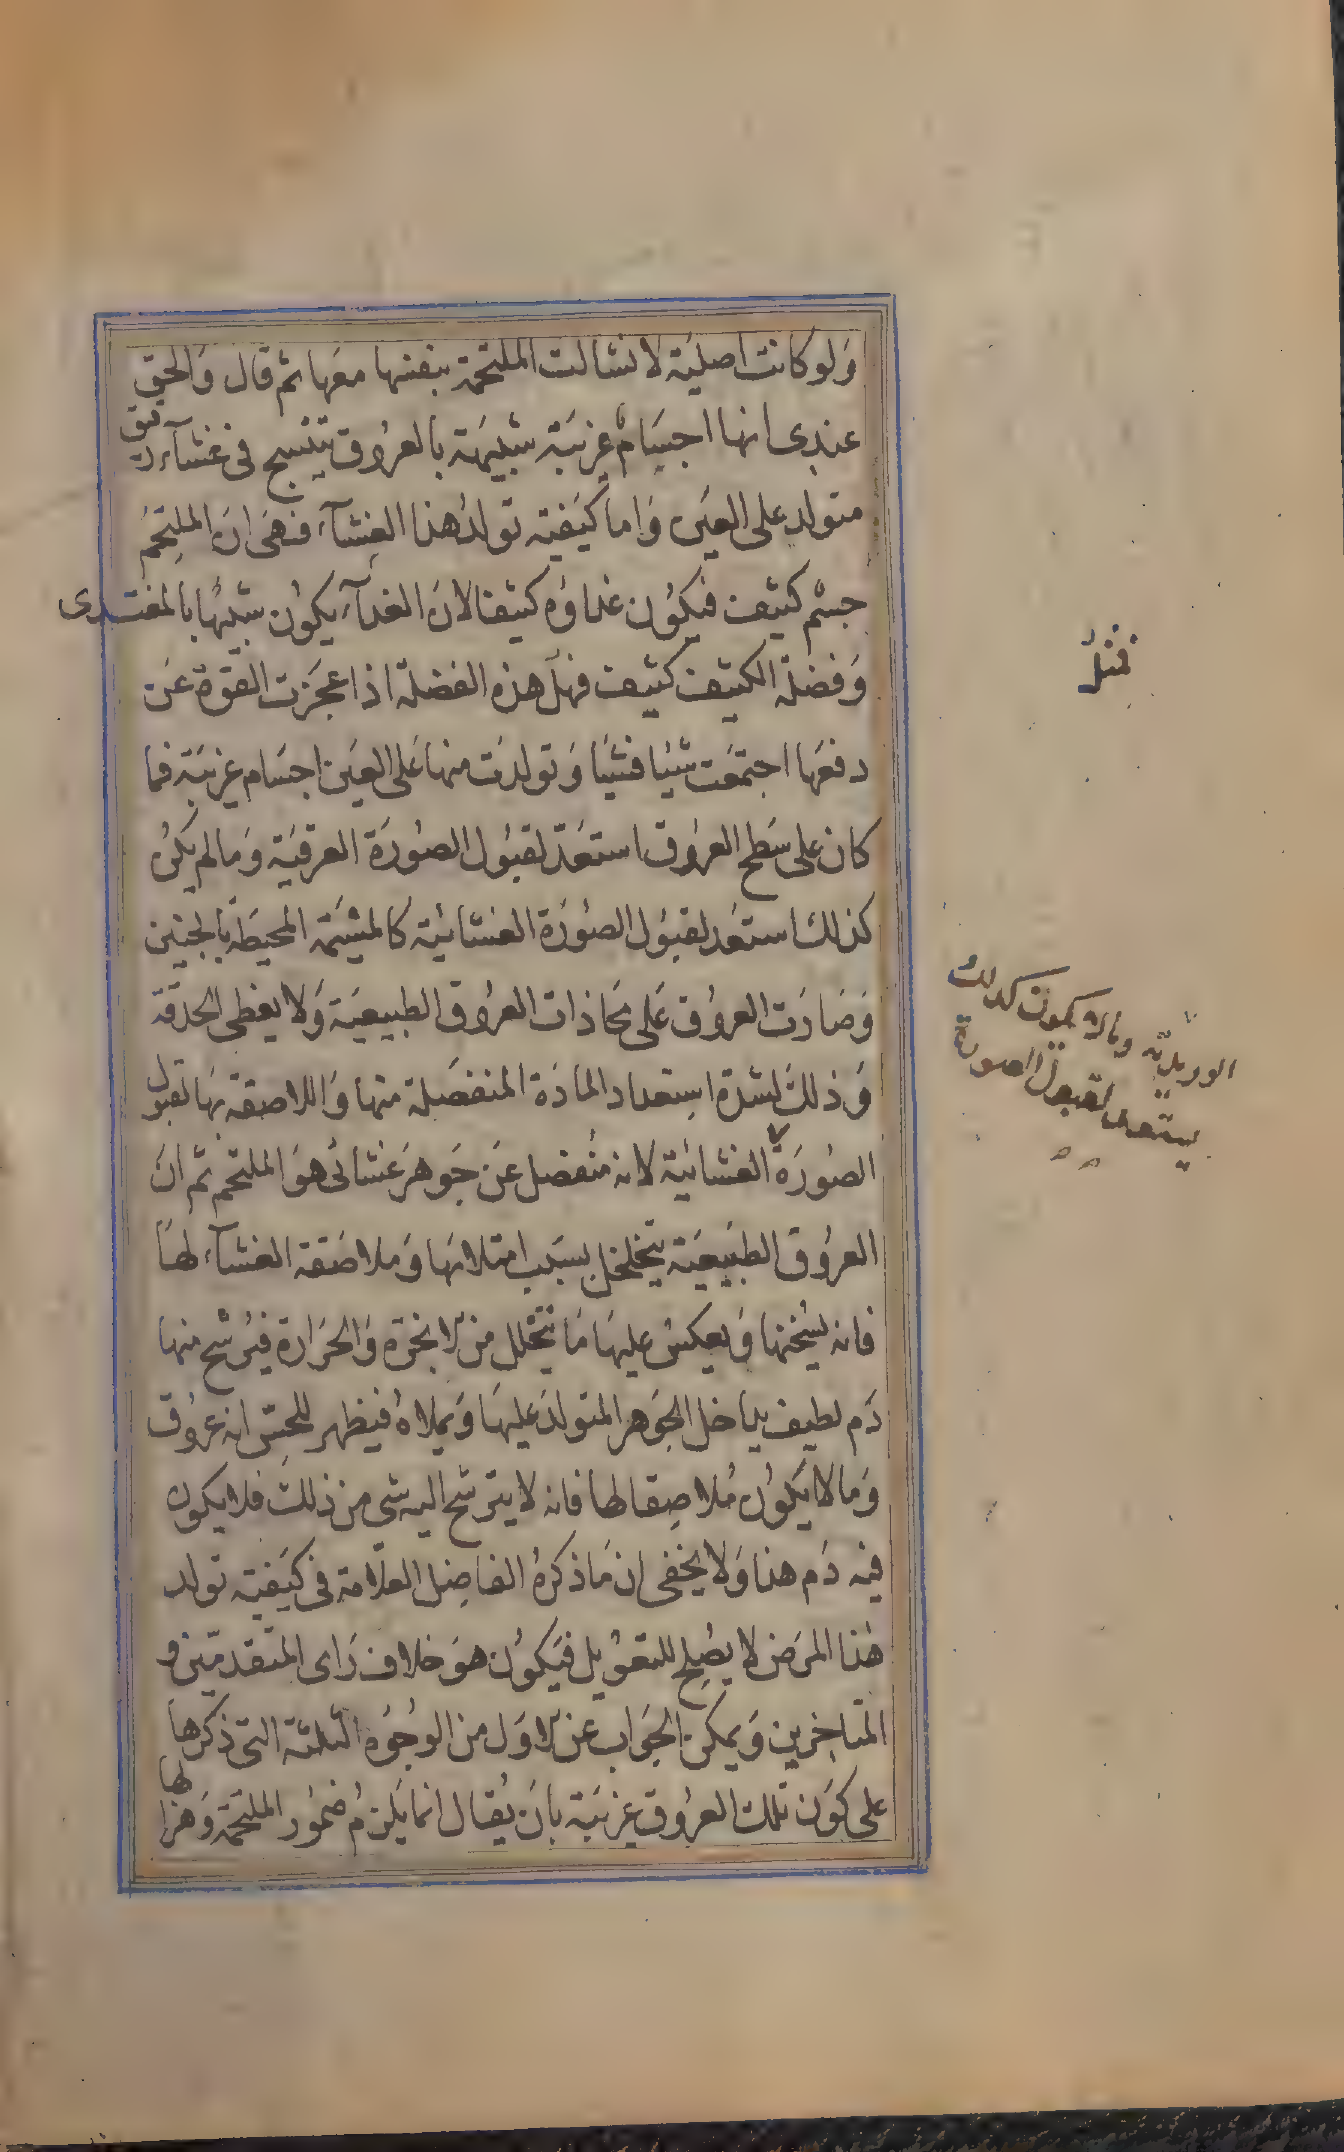 ولو كانت اصلية لانشالت الملتحمة بنفسها معها ثم قال والحق
عندى انها اجسام غريبة شبيهة بالعروق تنتسج فى غشاء رقيق
متولد على العين واما كيفية تولد هذا الغشاء فهى ان الملتحم
جسم كثيف فيكون غذاؤه كثيفا لان الغذاء يكون شبيها بالمغتذى
وفضلة الكثيف كثيف فهذه الفضلة اذا عجزت القوة عن
دفعها اجتمعت شيئا فشيئا وتولدت منها على العين اجسام غريبة فما
كان على سطح العروق استعد لقبول الصورة العرقية وما لم يكن
كذلك استعد لقبول الصورة الغشائية كالمشيمة المحيطة بالجنين
وصارت العروق على محاذات العروق الطبيعية ولا يغطى الحدقة
وذلك لشدة استعداد المادة المنفصلة منها واللاصقة بها لقبول
الصورة الغشائية لانه منفصل عن جوهر غشائى هو الملتحم ثم ان
العروق الطبيعية يتخلخل بسبب امتلائها وملاصقة الغشاء لها
فانه يسخنها ويعكس عليها ما يتحلل من الابخرة والحرارة فيترشح منها
دم لطيف يداخل الجوهر المتولد عليها ويملاه فيظهر للحس انه عروق
وما لا يكون ملاصقا لها فانه لا يترشح اليه شى من ذلك فلا يكون
فيه دم هذا ولا يخفى ان ما ذكره الفاضل العلامة فى كيفية تولد
هذا المرض لا يصلح للتعويل فيكون هو خلاف راى المتقدمين و
المتاخرين ويمكن الجواب عن الاول من الوجوه الثلثة التى ذكرها
على كون تلك العروق غريبة بان يقال انما يلزم ضمور الملتحمة وهزالها
فمثل
الوريدية وما لا يكون كذلك
يستعد لقبول الصورة